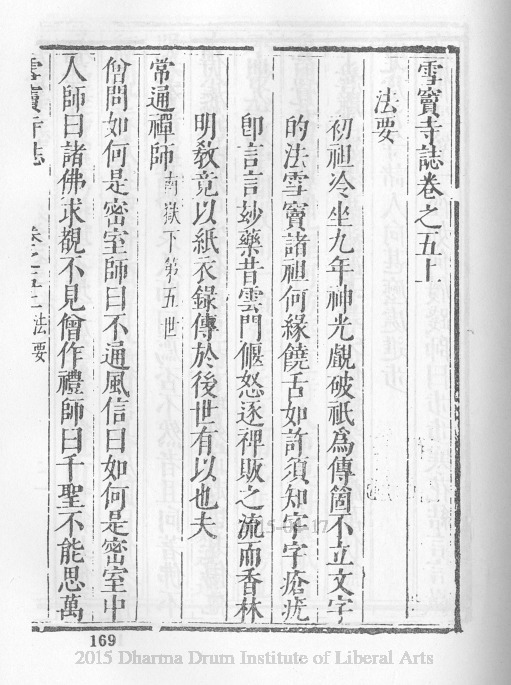 雪竇寺誌卷之五上
法要
初祖冷坐九年神光覷破祇為傳箇不立文字
的法雪竇諸祖何緣饒舌如許須知字字瘡疣
卽言言妙藥昔雲門偃怒逐裨販之流而香林
明教竟以紙衣錄傳於後世有以也夫
常通禪師南嶽下第五世
僧問如何是密室師曰不通風信曰如何是密室中
人師曰諸佛求覩不見僧作禮師曰千聖不能思萬
雪竇寺誌 卷之五上 法要
169
2015 Dharma Drum Institute of Liberal Arts